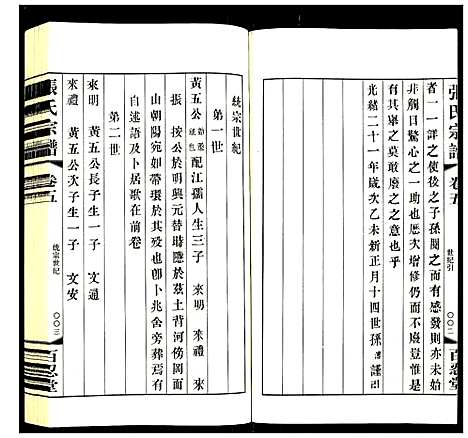 張氏宗譜
卷五
世紀引
〇〇二
百忍堂
者一一詳之使後之子孫閱之而有感發則亦未始
非觸目驚心之一助也歷次增修而不敢廢豈惟是
有其舉之莫敢廢之之意也乎
光緒二十一年歲次乙未新正月十四世孫 謹引
統宗世紀
第一世
黃五公 始遷祖也 配江孺人生三子 來明 來禮 來
振 按公於明興元替時隱於茲土背河傍岡而
山朝陽宛如帶環於其歿也卽卜兆舍旁葬焉有
自述語及卜居歌在前卷
第二世
來明 黃五公長子生一子 文通
來禮 黃五公次子生一子 文安
張氏宗譜
卷五
統宗世紀
〇〇三
百忍堂